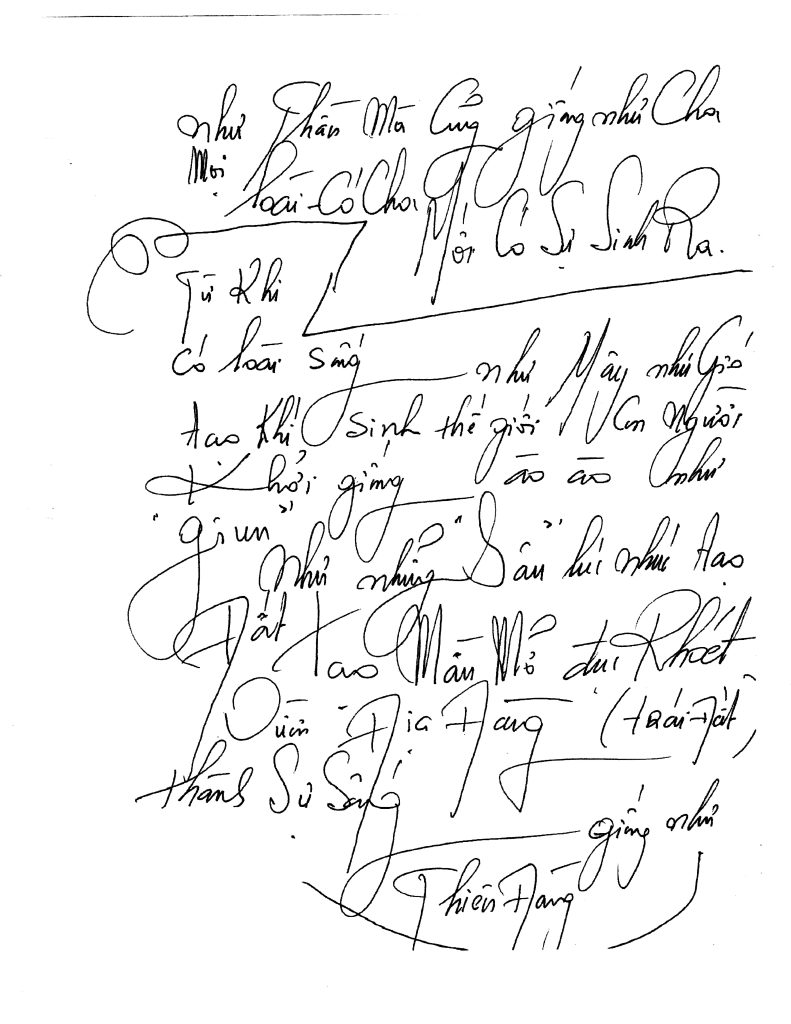 như Thần Mà Cũng giống như Cha
Mọi loài-Có Cha Mới Có Sự Sinh Ra.
Từ Khi
có loài sống như Mây như Gió
tạo Khí Sinh thế giới Con Người
Khởi giống ào ào như
"giun" Như những "Sâu" lúc nhúc tạo
Đất Tạo Mầu Mỡ đục Khoét
Vườn "Địa Đàng" (trái-Đất)
thành Sự Sống
giống như
Thiên Đàng